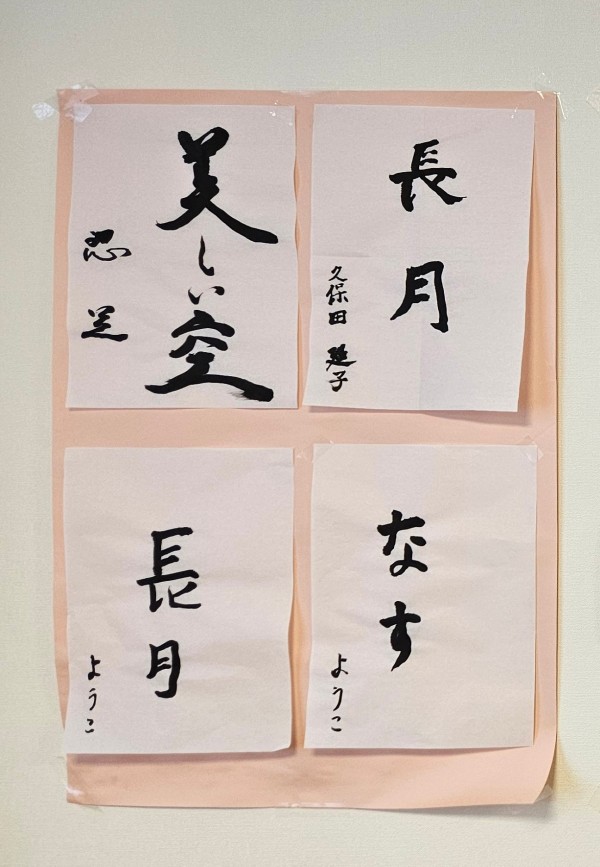 長月
久保田 延子
美しい空
忍足
なす
ようこ
長月
ようこ